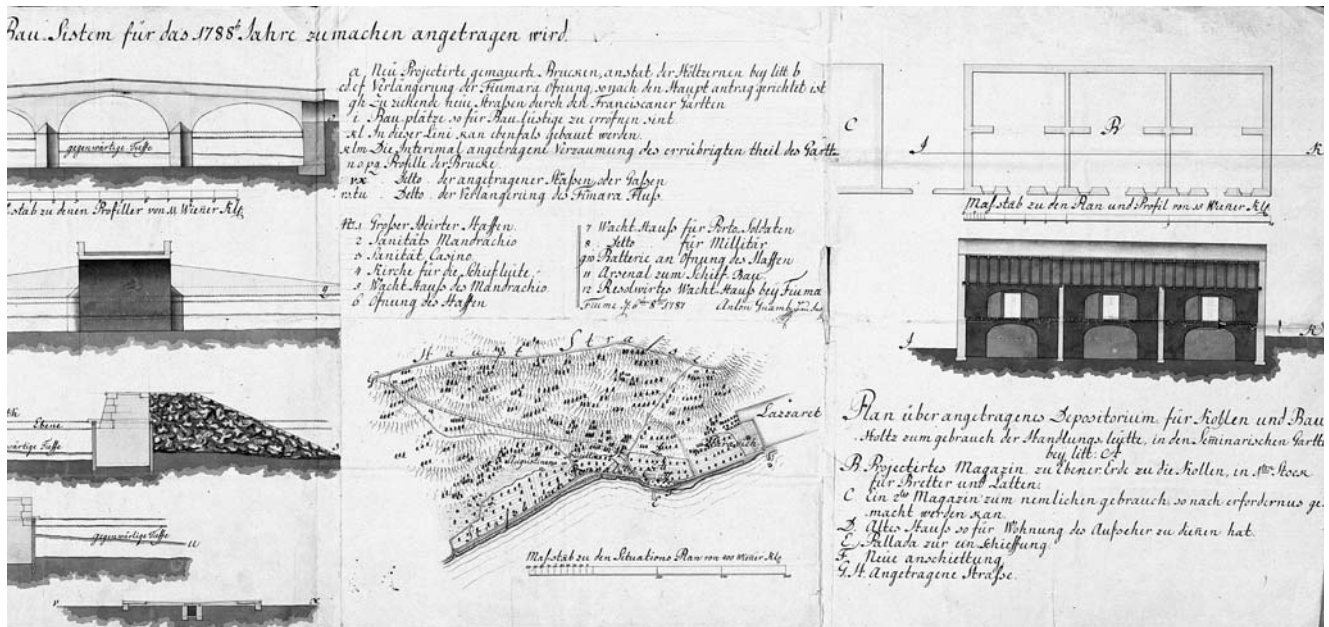 Bau-Sistem für das 1788te Jahre zu machen angetragen wird.
a Neu Projectirte gemauerte Brucken, anstat der Höltzernen bey litt b
cd.ef Verlängerung der Fiumara Ofnung, so nach den Haupt antrag gerichtet ist
gh Zu ziehende neue Strassen durch den Franciscaner Gartten
i Bau plätze so für Bau lustige zu eröfnen sint
kl In dieser Lini kan ebenfals gebaut werden.
klm Die Interimal angetragene Verzaumung des errübrigten theil des Gartt
nopq Profille der Brucke
vx Detto der angetragener Strassen oder Gassen
rstu Detto der Verlängerung des Fiumara Fluss.
No.1 Grosser
2 Sanitäts Mandrachio
3 Sanität Casino
4 Kirche für die Schiefleüte
5 Wacht Hauss des Mandrachio
6 Ofnung des Haffen
7 Wacht Hauss für Porto Soldaten
8 Detto für Millitär
9 10 Batterie an Ofnung des Haffen
11 Arsenal zum Schiff Bau
12 Resolwirtes Wacht Hauss bey Fiuma
Fiume 1787 Anton Gnamb
gegenwärtige Tieffe
stab zu denen Profiller von 11 Wiener Klf.
q
Ebene
wärtige Tieffe
gegenwärtige Tieffe
u
v
x
Haupt Strasse
Lazzaret
G
Masstab zu den Situations Plan von 400 Wiener Klf.
C
R
J
K
Masstab zu den Plan und Profil von 10 Wiener Klf.
J
K
Plan über angetragenes Depositorium für Kollen und Bau
Holtz zum gebrauch der Handlungs leütte, in den Seminarischen Gartt
bey litt: A
B Projectirtes Magazin zu Ebener Erde zu die Kollen, in 1ten Stock
für Bretter und Latten.
C Ein 2tes Magazin zum nemlichen gebrauch, so nach erfordernus ge
macht werden kan
D Altes Hauss so für Wohnung des Aufseher zu dienen hat.
E Pallada zur ein Schieffung
F Neue anschiettung
G.H. Angetragene Strasse.